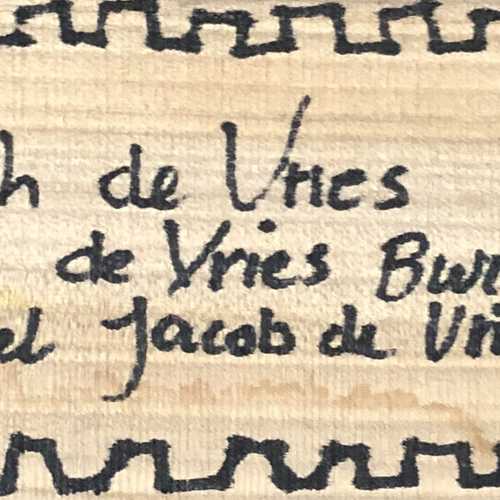 h de Vries
de Vries Bur
el Jacob de Vri